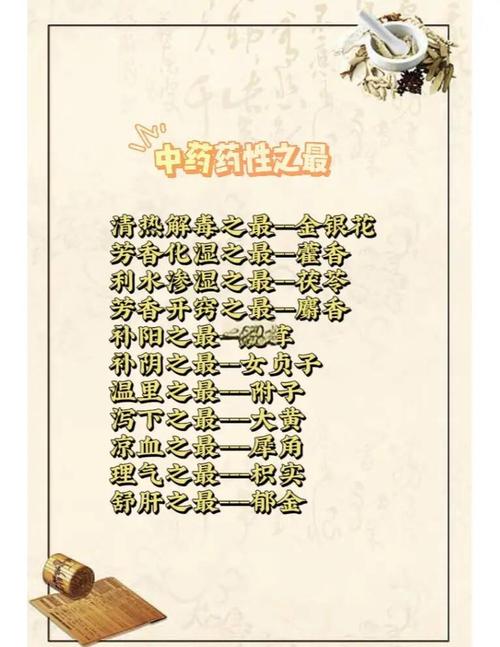 中药药性之最
清热解毒之最--金银花
芳香化湿之最--藿香
利水渗湿之最--茯苓
芳香开窍之最--麝香
补阳之最
补阴之最--女贞子
温里之最---附子
泻下之最---大黄
凉血之最---犀角
理气之最---枳实
舒肝之最---郁金